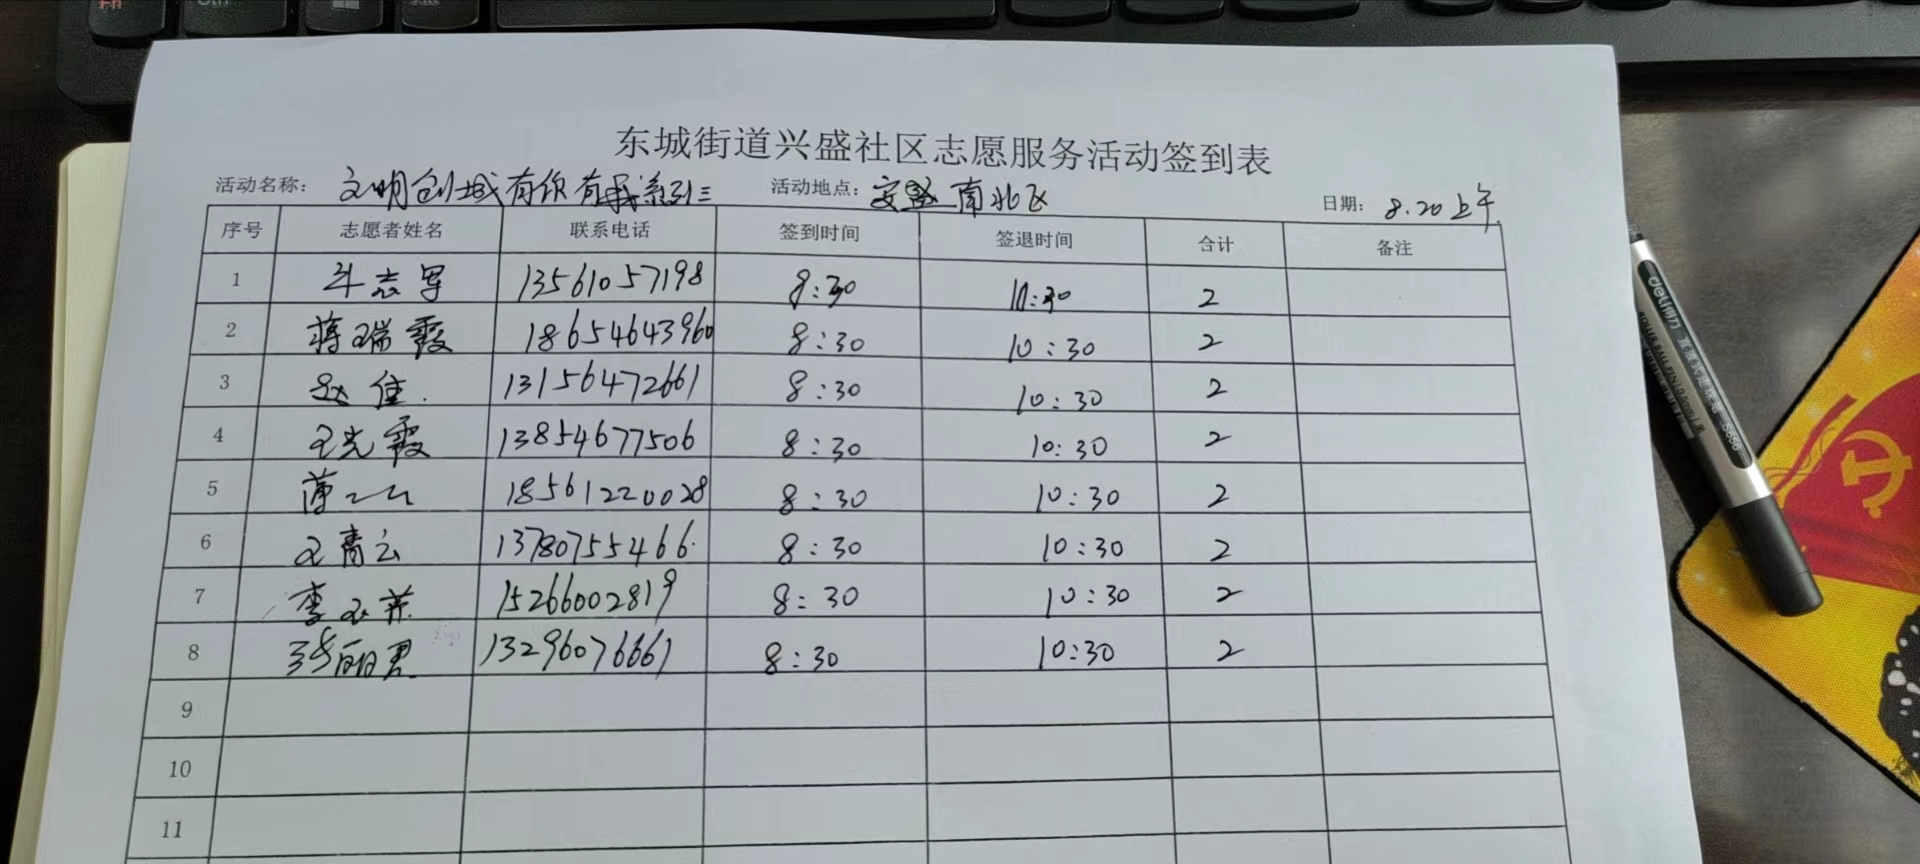 东城街道兴盛社区志愿服务活动签到表
活动名称: 文明创城有你有我系列三 活动地点: 安盛南北区 日期: 8.20上午
序号 志愿者姓名 联系电话 签到时间 签退时间 合计 备注
1 志军 13561057198 8:30 10:30 2
2 蒋瑞霞 18654643960 8:30 10:30 2
3 赵佳 13156472661 8:30 10:30 2
4 王光霞 13854677506 8:30 10:30 2
5 薄 18561220028 8:30 10:30 2
6 王青云 13780755466 8:30 10:30 2
7 李玉 15266002819 8:30 10:30 2
8 张丽君 13296076661 8:30 10:30 2
9
10
11
deli得力
S656